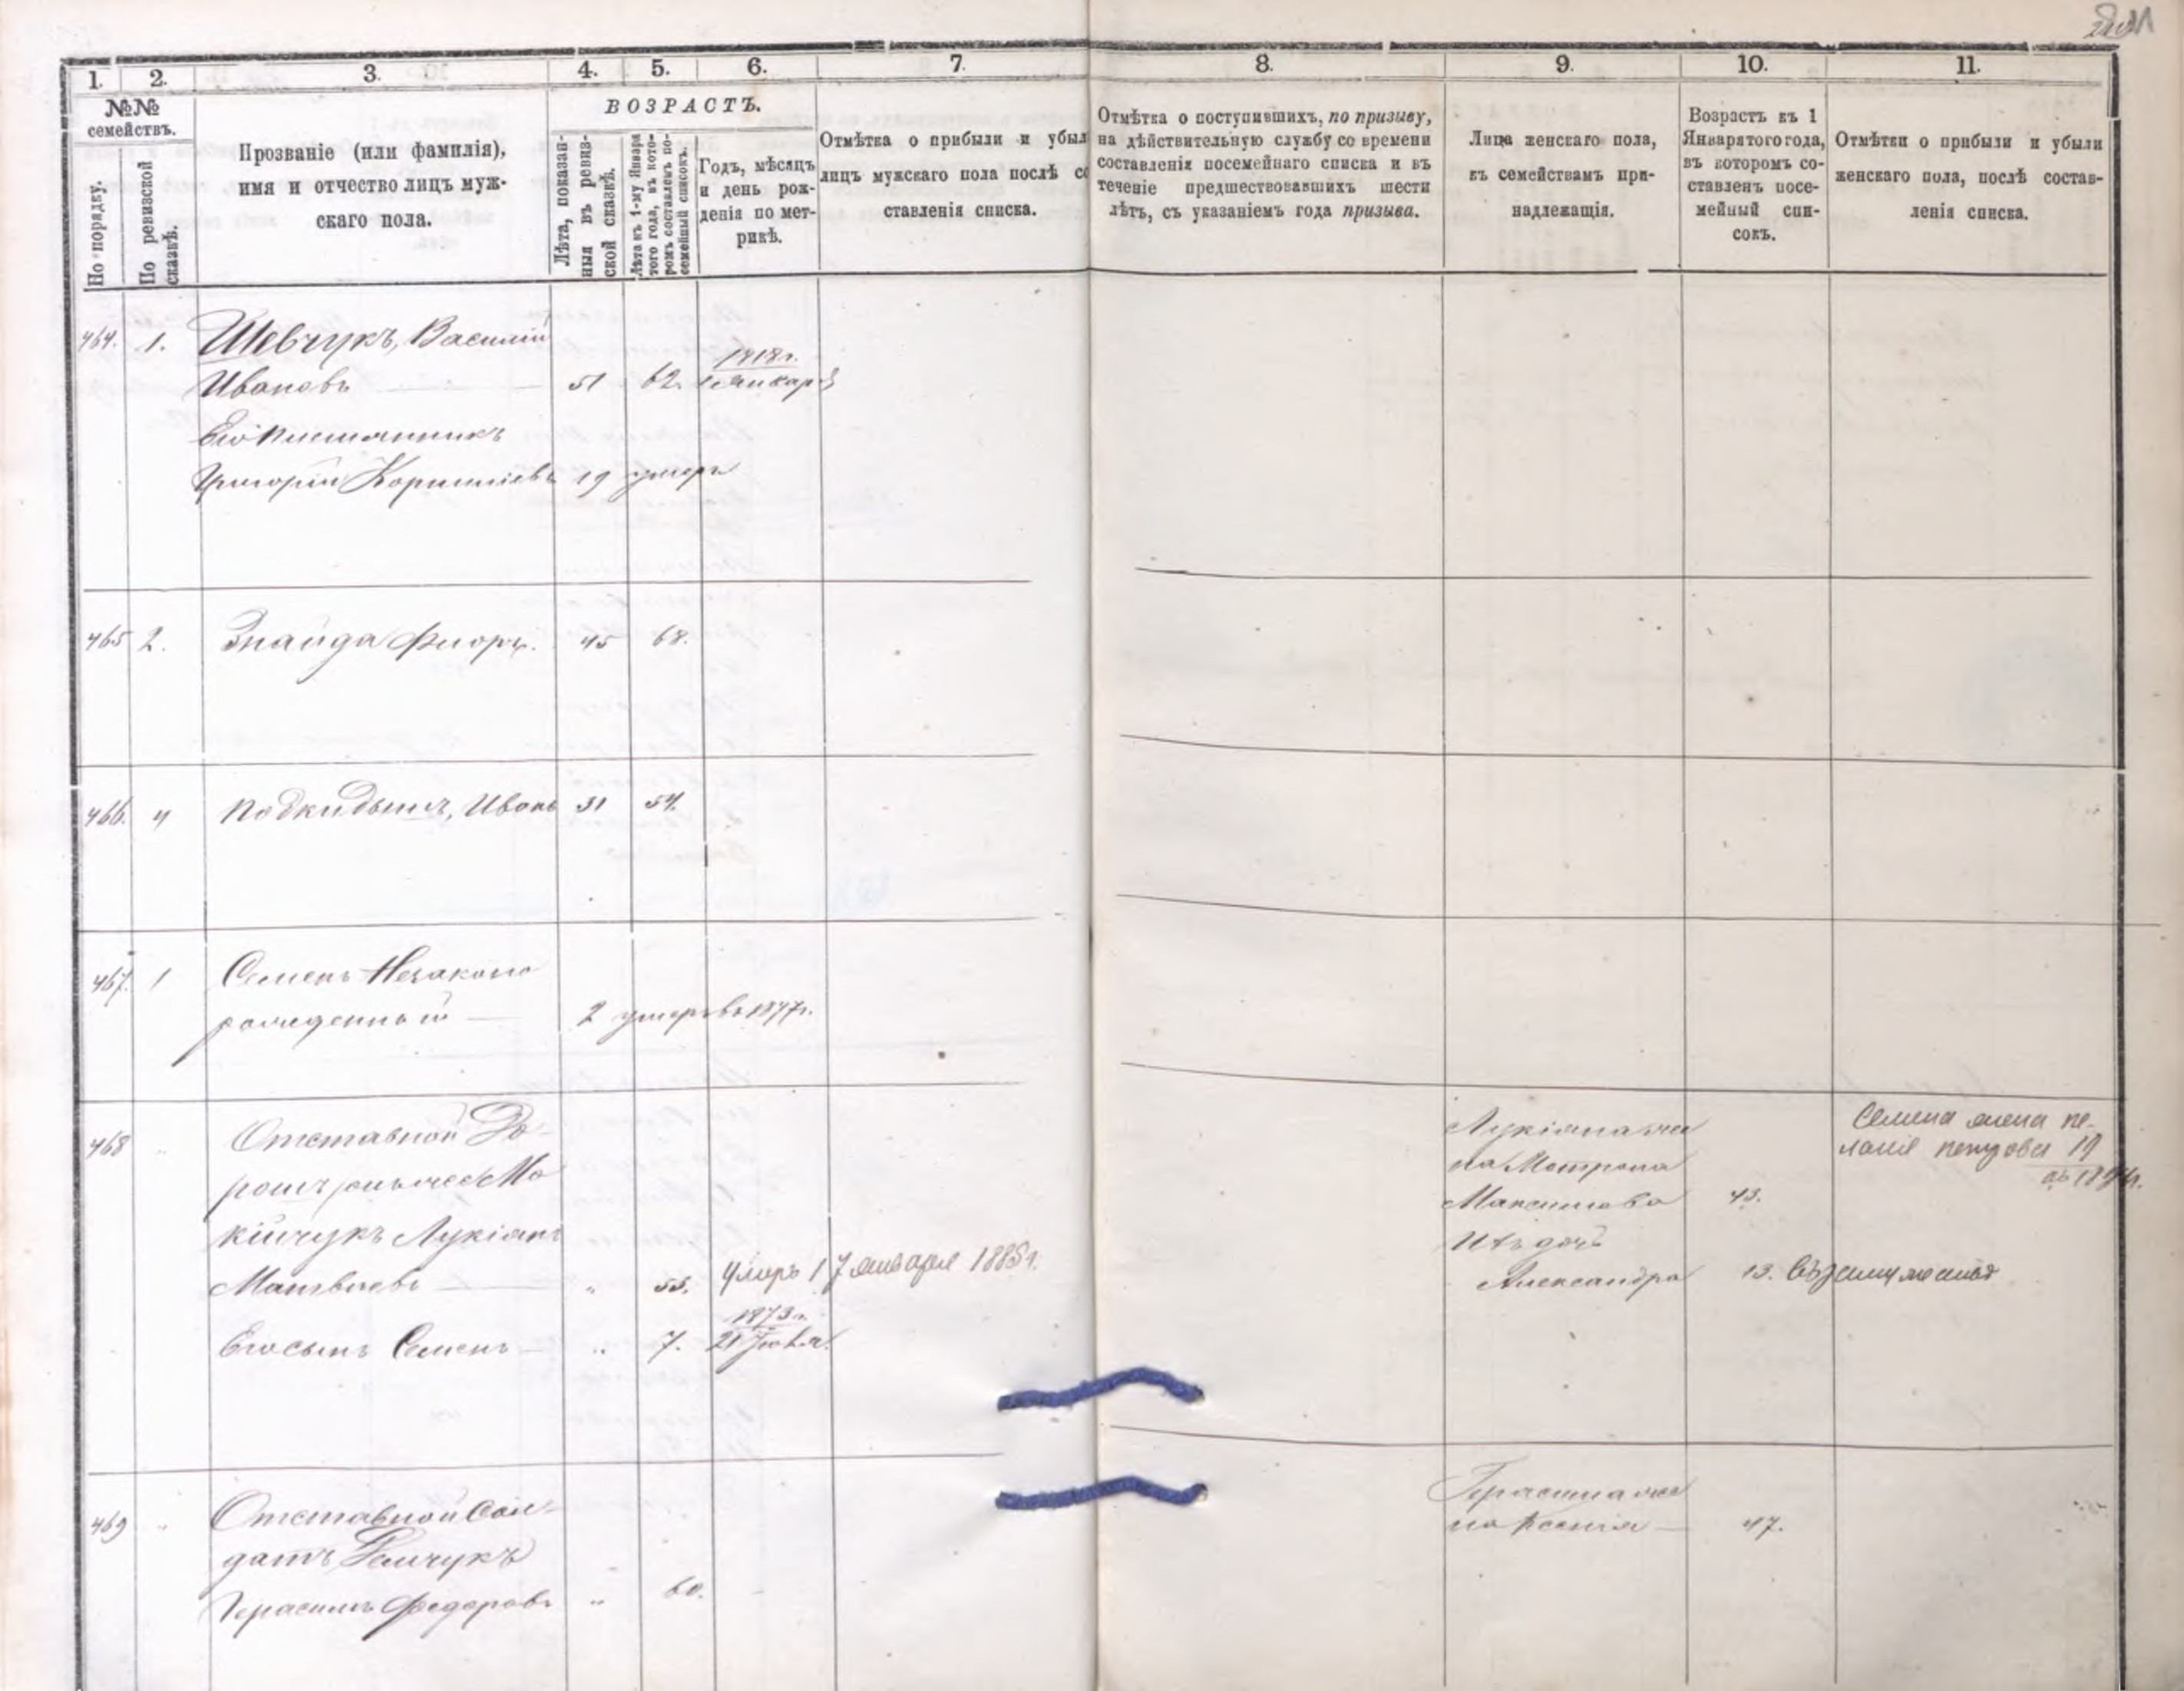 1. 2. 3. 4. 5. 6. 7. 8. 9. 10. 11.
№№ семействъ.
По порядку.
По ревизской сказкѣ.
Прозваніе (или фамилія),
имя и отчество лицъ муж-
скаго пола.
ВОЗРАСТЪ.
Лѣта, показан-
ныя въ ревиз-
ской сказкѣ.
Лѣта къ 1-му Января
того года, въ кото-
ромъ составленъ по-
семейный списокъ.
Годъ, мѣсяцъ
и день рож-
денія по мет-
рикѣ.
Отмѣтка о прибыли и убыл
лицъ мужскаго пола послѣ со
ставленія списка.
Отмѣтка о поступившихъ, по призыву,
на дѣйствительную службу со времени
составленія посемейнаго списка и въ
теченіе предшествовавшихъ шести
лѣтъ, съ указаніемъ года призыва.
Лица женскаго пола,
къ семействамъ при-
надлежащія.
Возрастъ къ 1
Января того года,
въ которомъ со-
ставленъ посе-
мейный спи-
сокъ.
Отмѣтки о прибыли и убыли
женскаго пола, послѣ состав-
ленія списка.
464. 1. Шевчукъ, Василій
1818 г.
Ивановъ 51 62. 1 Января
Его племянникъ
Григорій Корниліевъ 19 умеръ
465 2. Знайда Флоръ. 45 68.
466. 4 Подкидышъ, Иванъ 31 54.
467. 1 Семенъ Незаконо
рожденный 2 умеръ въ 1877 г.
468 Отставной До-
Мо
кійчукъ Лукіянъ
Матвѣевъ 55. Умеръ 17 января 1885 г.
1873 г.
Его сынъ Семенъ 7. 21 Іюля
Лукіяна же
на Матрона
Максимова 43.
Ихъ дочь
Александра 13. Въ замужествѣ
Семена жена Пе-
лагія Петрова 19
469 Отставной Сол-
датъ
Герасимъ Федоровъ 60.
Герасима же
на Ксенія 47.